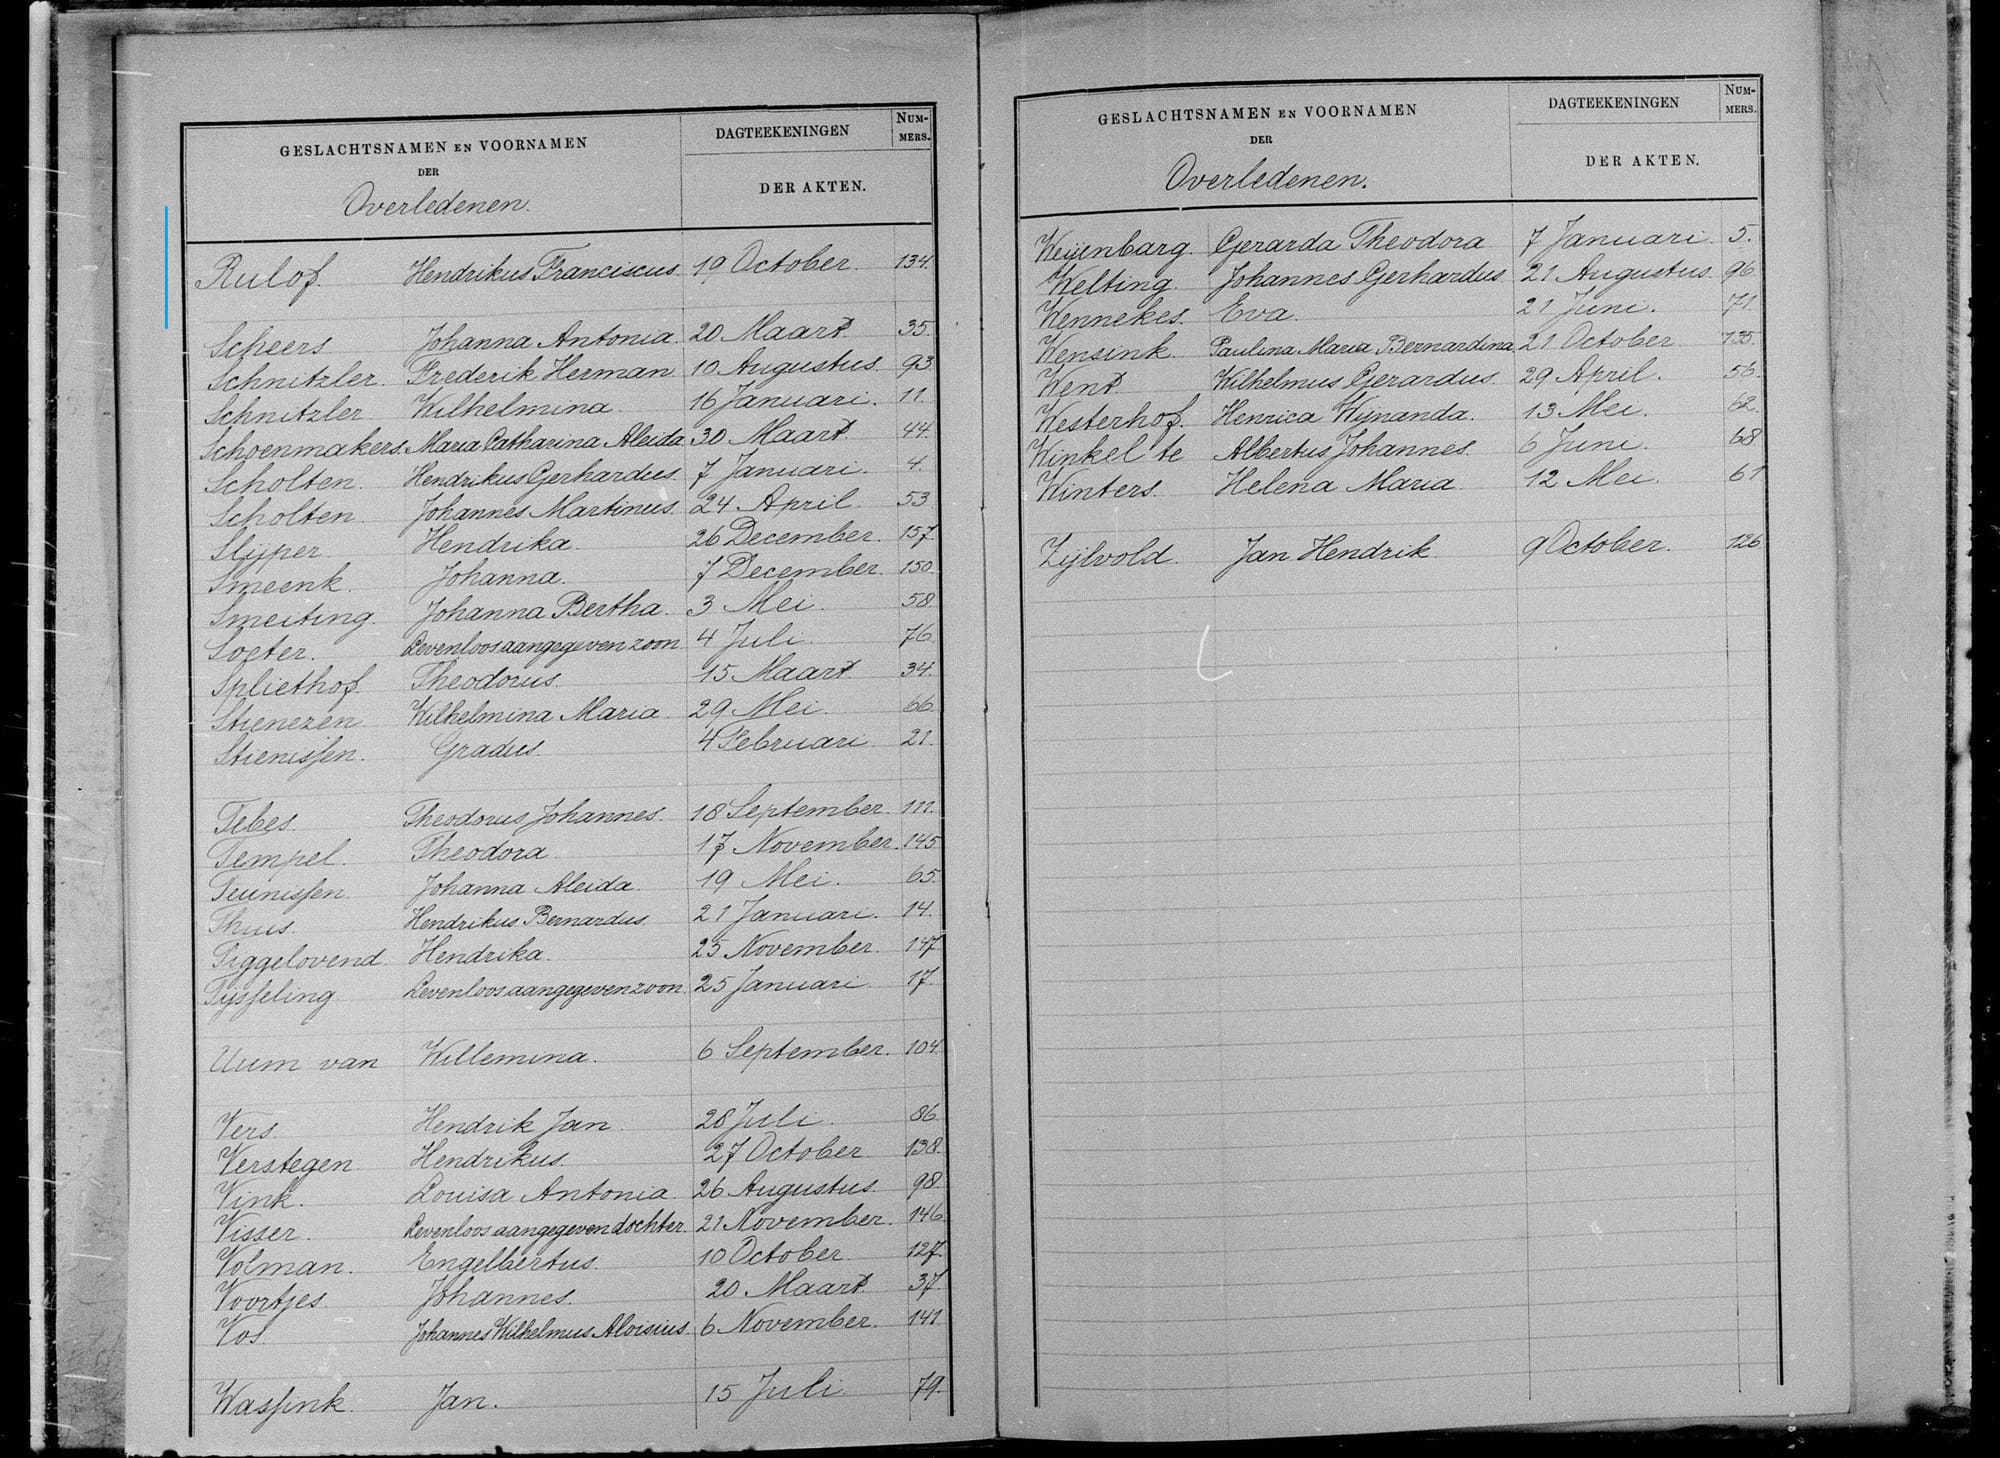 GESLACHTSNAMEN EN VOORNAMEN DAGTEEKENINGEN NUM-MERS.
DER
Overledenen. DER AKTEN.
Rulof. Hendrikus Franciscus. 19 October. 134.
Scheers Johanna Antonia. 20 Maart. 35.
Schnitzler. Frederik Herman 10 Augustus. 93.
Schnitzler Wilhelmina. 16 Januari. 11.
Schoenmakers. Maria Catharina Aleida. 30 Maart. 44.
Scholten. Hendrikus Gerhardus. 7 Januari. 4.
Scholten. Johannes Martinus. 24 April. 53.
Slijper. Hendrika. 26 December. 157.
Smeenk. Johanna. 7 December. 150.
Smeiting. Johanna Bertha. 3 Mei. 58.
Soeter. Levenloos aangegeven zoon 4 Juli. 76.
Spliethof. Theodorus. 15 Maart. 34.
Stienezen. Wilhelmina Maria. 29 Mei. 66.
Stienissen. Gradus. 4 Februari. 21.
Tebes. Theodorus Johannes. 18 September. 111.
Tempel. Theodora. 17 November. 145.
Teunissen. Johanna Aleida. 19 Mei. 65.
Thuis. Hendrikus Bernardus. 21 Januari. 14.
Tiggelovend. Hendrika. 25 November. 147.
Tijsseling. Levenloos aangegeven zoon. 25 Januari. 17.
Uum van Willemina. 6 September. 104.
Vers. Hendrik Jan. 28 Juli. 86.
Verstegen. Hendrikus. 27 October. 138.
Vink. Louisa Antonia. 26 Augustus. 98.
Visser. Levenloos aangegeven dochter. 21 November. 146.
Volman. Engelbertus. 10 October. 127.
Voortjes. Johannes. 20 Maart. 37.
Vos Johannes Wilhelmus Aloisius. 6 November. 141.
Wassink. Jan. 15 Juli 79.
GESLACHTSNAMEN EN VOORNAMEN DAGTEEKENINGEN NUM-MERS.
DER
Overledenen. DER AKTEN.
Weijenbarg. Gerarda Theodora 7 Januari. 5.
Welting. Johannes Gerhardus. 21 Augustus. 96.
Wennekes. Eva. 21 Juni. 71.
Wensink. Paulina Maria Bernardina. 21 October. 135.
Went. Wilhelmus Gerardus. 29 April. 56.
Westerhof. Henrica Wijnanda. 13 Mei. 62.
Winkel te Albertus Johannes. 6 Juni. 68.
Winters. Helena Maria. 12 Mei. 61
Zijlvold. Jan Hendrik. 9 October. 126.